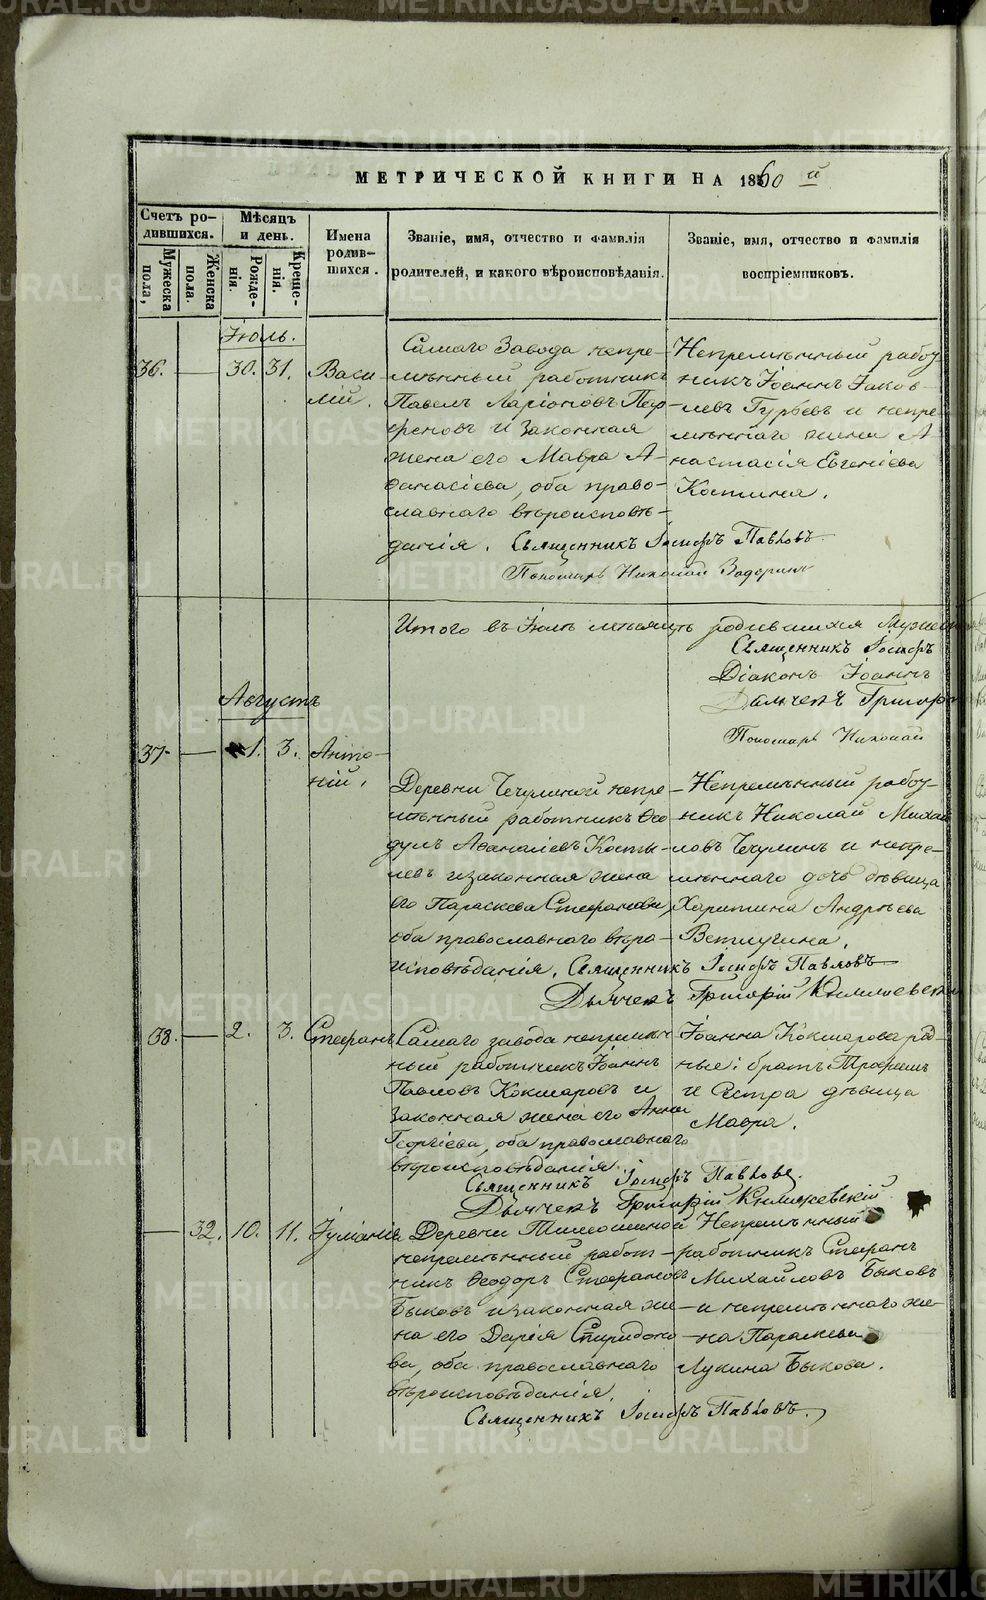 МЕТРИЧЕСКОЙ КНИГИ НА 1860 й
Счетъ ро-
дившихся.
Мужеска
пола,
Женска
пола.
Мѣсяцъ
и день.
Рожде-
нія.
Креще-
нія.
Имена
родив-
шихся.
Званіе, имя, отчество и фамилія
родителей, и какого вѣроисповѣданія.
Званіе, имя, отчество и фамилія
воспріемниковъ.
Іюль.
36. — 30. 31. Васи-
лій.
Самаго Завода непре-
мѣнный работникъ
Павелъ Ларіоновъ Пар-
феновъ и законная
жена его Мавра А-
ѳанасіева, оба право-
славнаго вѣроисповѣ-
данія. Священникъ Іосифъ Павловъ
Пономарь Николай
Непремѣнный рабо
никъ Іоаннъ Іаков-
левъ Гурьевъ и непре
мѣннаго жена А
настасія Евгеніева
Костина.
Итого въ Іюлѣ родившихся
Священникъ Іосифъ
Діаконъ Іоаннъ
Дьячекъ Григор
Пономарь Николай
Августъ
37. — 1. 3. Анто-
ній.
Деревни Чечулиной непре-
мѣнный работникъ Ѳео
дулъ Аѳанасіевъ Косты-
левъ и законная жена
его Параскева Стефанова,
оба православнаго вѣро-
исповѣданія. Священникъ Іосифъ Павловъ
Дьячекъ Григорій
Непремѣнный рабо
никъ Николай Михай
ловъ Чечулинъ и непре-
мѣннаго дочь дѣвица
Харитина Андрѣева
Ветлугина.
38. — 2. 3. Стефанъ
Самаго завода непремѣн
ный работникъ Іоаннъ
Павловъ Кокшаровъ и
законная жена его Анна
Георгіева, оба православнаго
вѣроисповѣданія.
Іоанна Кокшарова род-
ные: братъ Трофимъ
и сестра дѣвица
Мавра.
Священникъ Іосифъ Павловъ.
Дьячекъ Григорій
— 32. 10. 11. Іуліанія
Деревни Тимошиной
непремѣнный работ-
никъ Ѳеодоръ Стефановъ
Быковъ и законная же-
на его Дарія Спиридоно-
ва, оба православнаго
вѣроисповѣданія.
Непремѣнный
работникъ Стефанъ
Михайловъ Быковъ
и непремѣннаго же-
на Параскева
Лукина Быкова.
Священникъ Іосифъ Павловъ.
METRIKI.GASO-URAL.RU